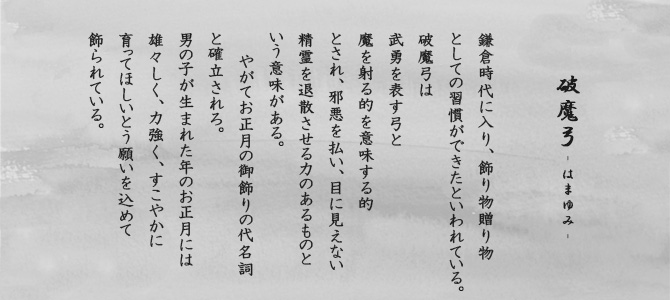 破魔弓 - はまゆみ -
鎌倉時代に入り、飾り物贈り物
としての習慣ができたといわれている。
破魔弓は
武勇を表す弓と
魔を射る的を意味する的
とされ、邪悪を払い、目に見えない
精霊を退散させる力のあるものと
いう意味がある。
やがてお正月の御飾りの代名詞
と確立される。
男の子が生まれた年のお正月には
雄々しく、力強く、すこやかに
育ってほしいとう願いを込めて
飾られている。